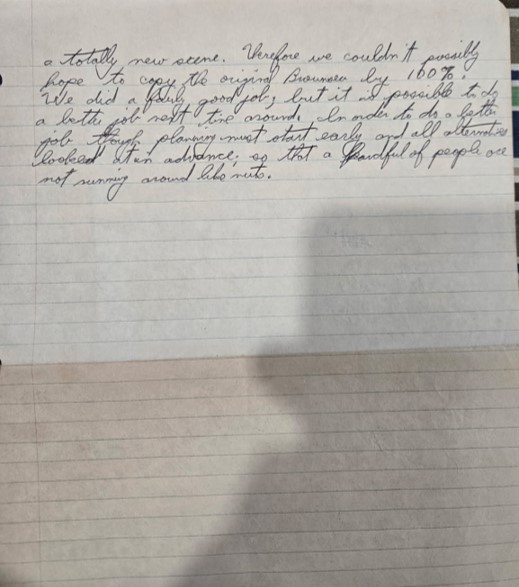 a totally new scene. Therefore we couldn't possibly
hope to copy the original Brownsea by 100%.
We did a fairly good job, but it is possible to do
a better job next time around. In order to do a better
job though planning must start early and all alternatives
looked at in advance, so that a handful of people are
not running around like nuts.